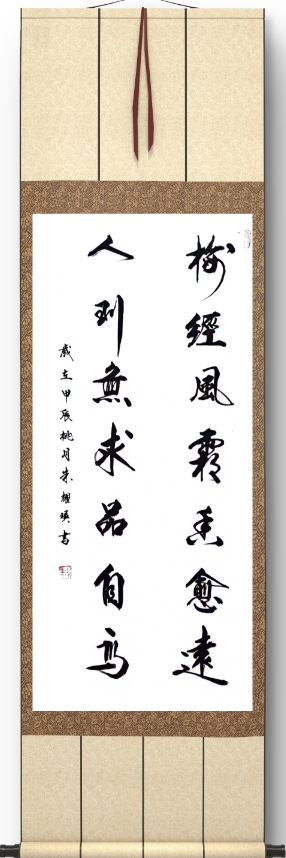 梅經風霜香愈遠
人到無求品自高
歲在甲辰桃月朱相瑛書